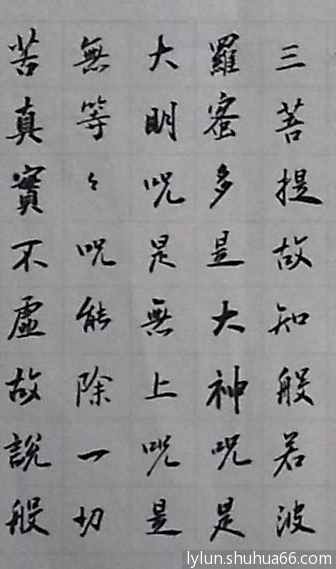 三菩提故知般若波
羅蜜多是大神咒是
大明咒是無上咒是
無等々咒能除一切
苦真實不虛故說般
lylun.shuhua66.com